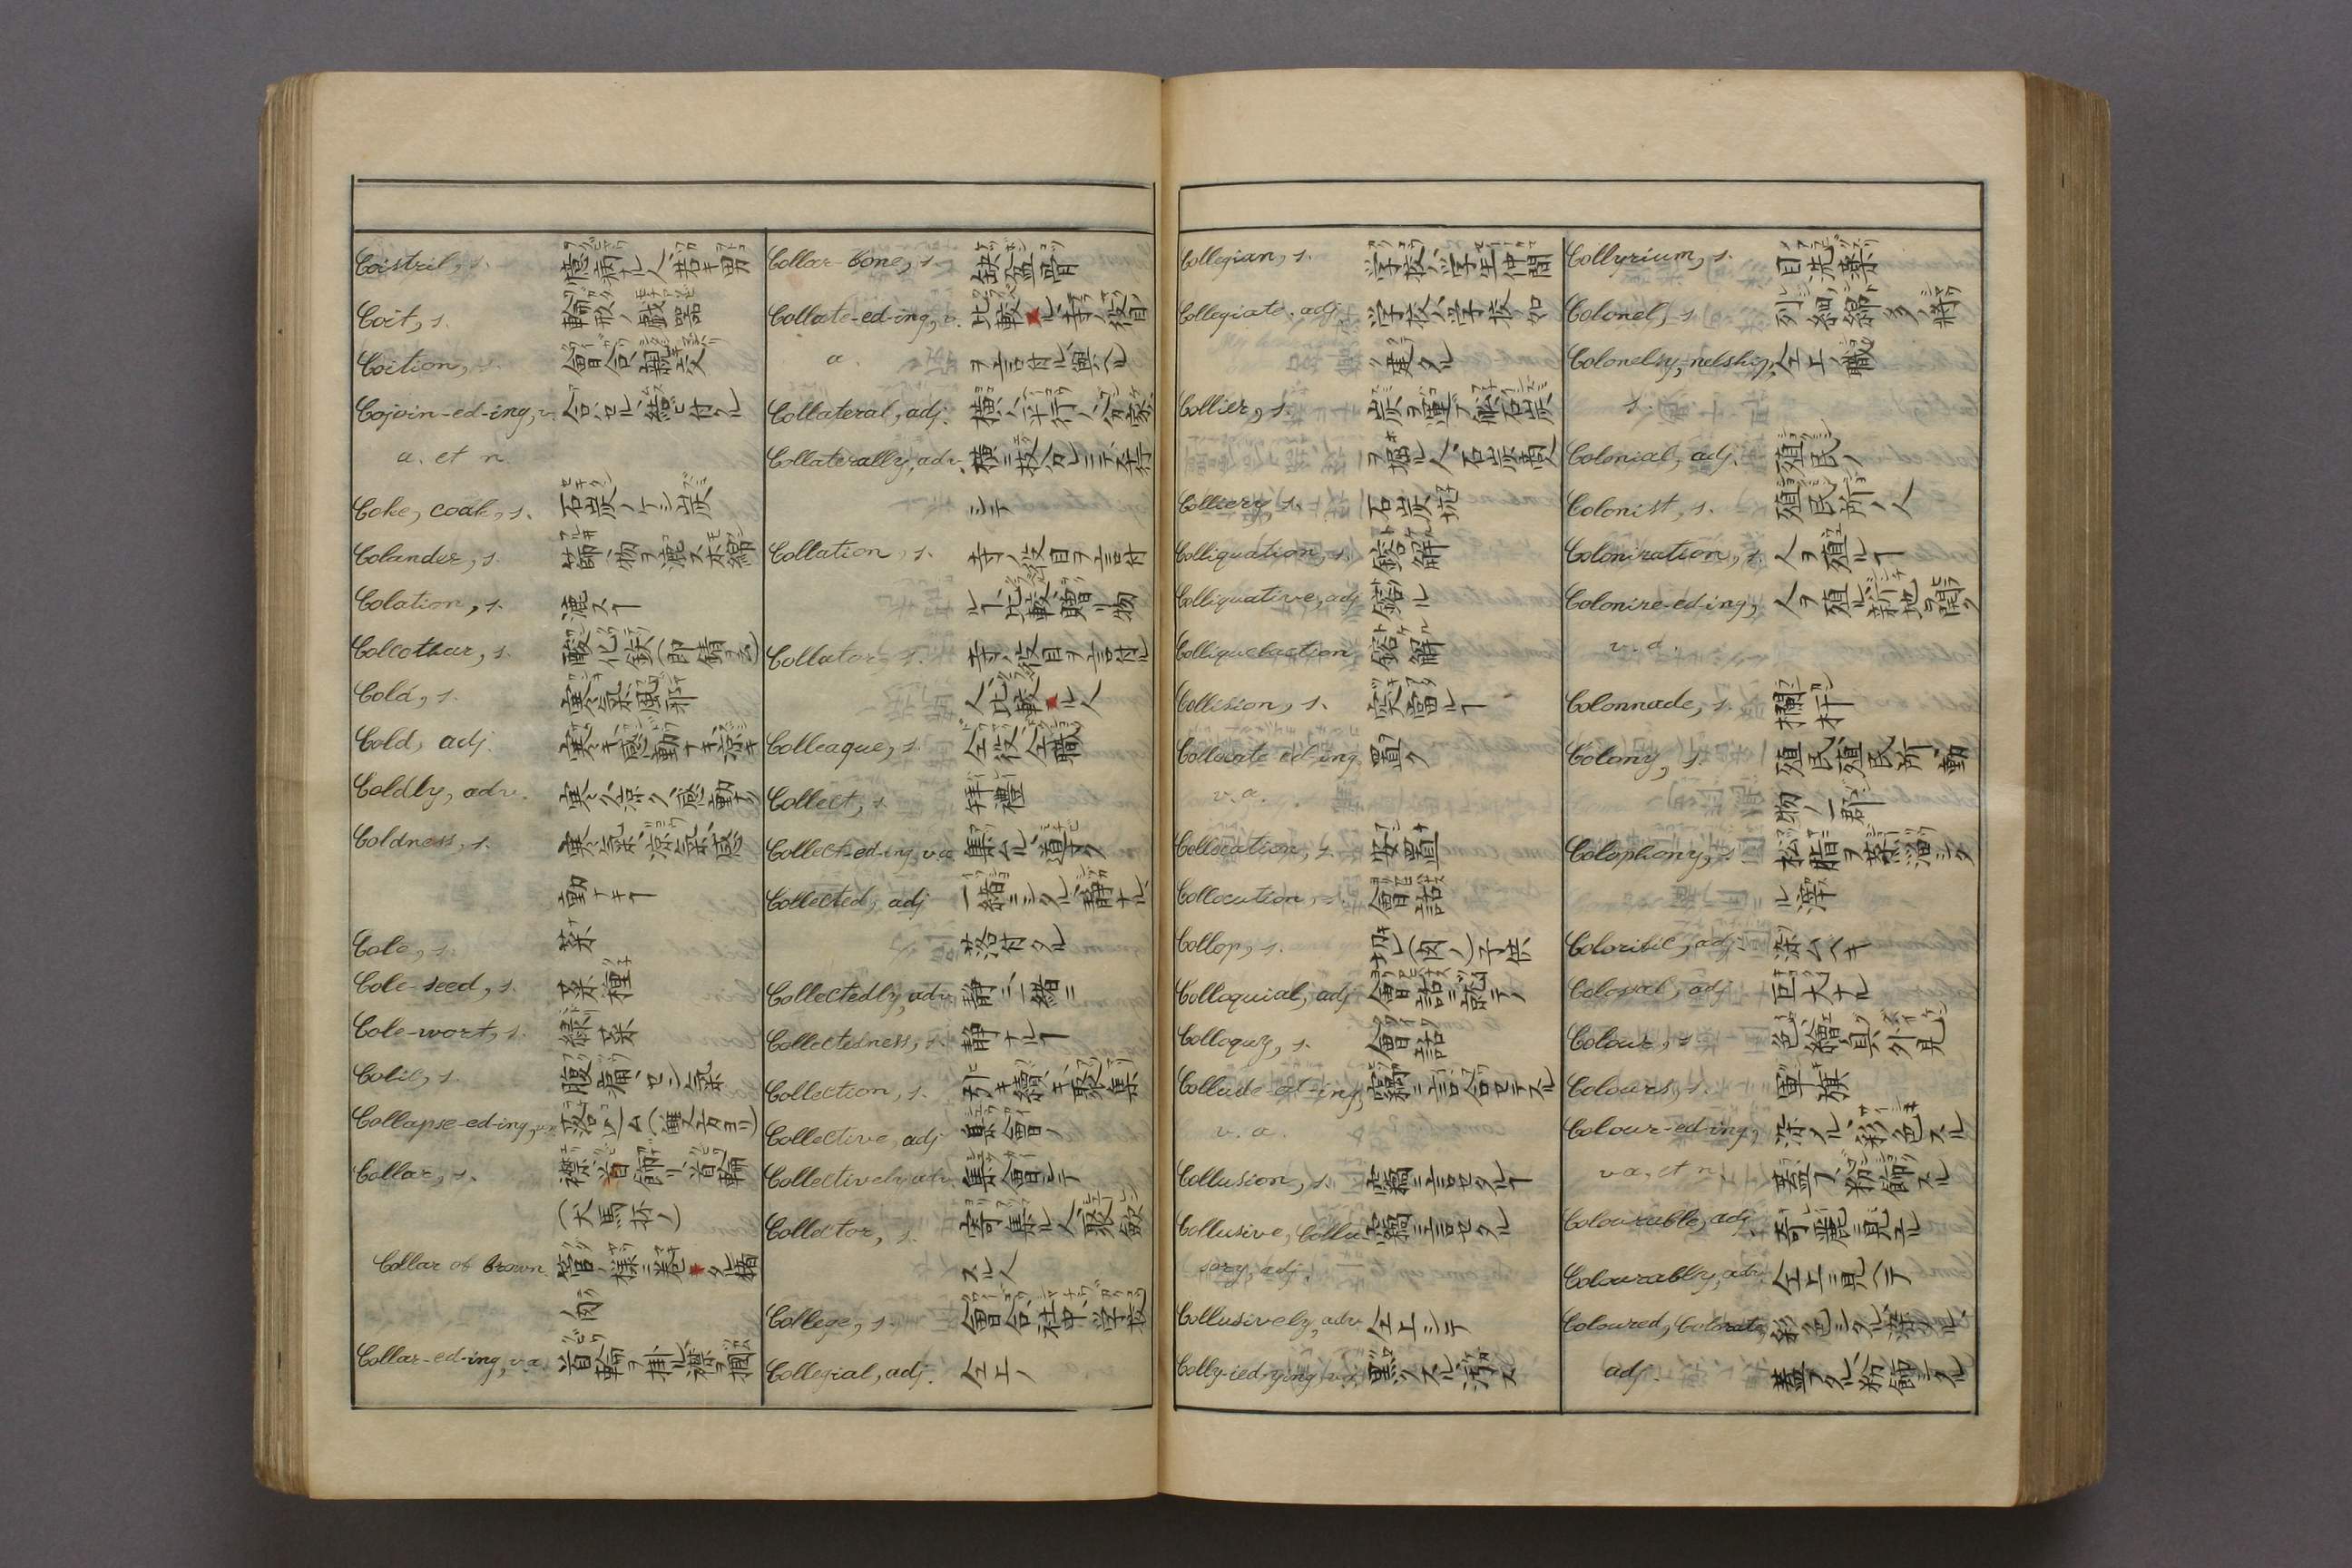 Coistril, s. 臆病ナル人、若キ男
Coit, s. 輪形ノ戯器
Coition, s. 會合、親交
Cojoin-ed-ing, v. 合セル、結ビ付クル
a. et n.
Coke, coak, s. 石炭ノケシ炭
Colander, s. 篩、物ヲ漉ス木綿
Colation, s. 漉スヿ
Colcothar, s. 酸化鉄(即錆ヲ云)
Cold, s. 寒氣、風邪
Cold, adj. 寒キ、感動ナキ、涼キ
Coldly, adv. 寒ク、涼ク、感動ナク
Coldness, s. 寒氣、涼氣、感
動ナキヿ
Cole, s. 菜
Cole-seed, s. 菜種
Cole-wort, s. 緑菜
Colic, s. 腹痛、セン氣
Collapse-ed-ing, v.n. 落込ム
Collar, s. 襟、首飾リ、首輪
(犬馬抔ノ)
Collar of brawn. 管ノ様ニ巻キタル猪
肉
Collar-ed-ing, v.a. 首輪ヲ掛ル、襟ヲ掴ム
Collar-bone, s. 缺盆骨
Collate-ed-ing, v. 比較スル、寺ノ役目
a. ヲ言付ル、與ヘル
Collateral, adj. 横ノ、平行ノ、分家ノ
Collaterally, adv. 横ニ、枝分レニテ、平行
シテ
Collation, s. 寺ノ役目ヲ言付
ルヿ、比較、贈リ物
Collator, s. 寺ノ役目ヲ言付ル
人、比較スル人
Colleague, s. 仝役、仝職
Collect, s. 拝禮
Collect-ed-ing, v.a. 集ムル、導ク
Collected, adj. 一緒ニシタル、静ナル、
落付タル
Collectedly, adv. 静ニ、一緒ニ
Collectedness, s. 静ナルヿ
Collection, s. 引キ續キ、聚集
Collective, adj. 集會ノ
Collectively, adv. 集會シテ
Collector, s. 寄集ル人、聚歛
スル人
College, s. 會合、社中、学校
Collegial, adj. 仝上ノ
Collegian, s. 学校ノ学生仲間
Collegiate, adj. 学校ノ、学校ノ如
ク建タル
Collier, s. 炭ヲ運ブ舩、石炭
ヲ掘ル人、石炭商人
Colliery, s. 石炭抗
Colliquation, s. 鎔解
Colliquative, adj. 鎔ル
Colliquefaction, 鎔解
Collision, s. 突當ルヿ
Collocate-ed-ing, 置ク
v.a.
Collocation, s. 安置
Collocution, s. 會話
Collop, s. 切レ(肉ノ)、子供
Colloquial, adj. 會話ニ就テノ
Colloquy, s. 會話
Collude-ed-ing, 竊ニ言合セテスル
v.a.
Collusion, s. 竊ニ言合セタルヿ
Collusive, Collu- 竊ニ言合セタル
sory, adj.
Collusively, adv. 仝上シテ
Colly-ied-ying, v.a. 黒クスル、汚ス
Collyrium, s. 目洗薬
Colonel, s. 列紐綿多ノ将
Colonelcy,-nelship, 仝上ノ職
s.
Colonial, adj. 殖民ノ
Colonist, s. 殖民所ノ人
Colonization, s. 人ヲ殖ルヿ
Colonize-ed-ing, 人ヲ殖ル、新地ヲ開ク
v.a.
Colonnade, s. 欄杆
Colony, s. 殖民、殖民所、動
物ノ一部
Colophony, s. 松脂ヲ蒸溜シタ
ル滓
Colorific, adj. 染ムベキ
Colossal, adj. 巨大ナル
Colour, s. 色、繪具、外見
Colours, s. 軍旗
Colour-ed-ing, 染ル、彩色スル
v.a. et n. 蓋フ、粉飾スル
Colourable, adj. 奇麗ニ見エル
Colourably, adv. 仝上ニ見ヘテ
Coloured, Colorate, 彩色シタル、染タル、
adj. 蓋フタル、粉飾シタル